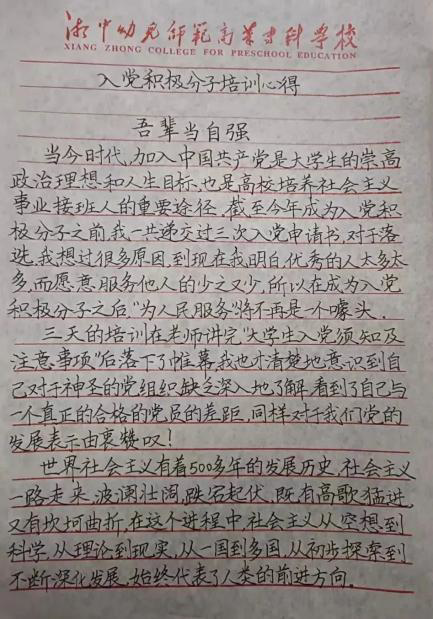 湘中幼儿师范高等专科学校
XIANG ZHONG COLLEGE FOR PRESCHOOL EDUCATION
入党积极分子培训心得
吾辈当自强
当今时代,加入中国共产党是大学生的崇高
政治理想和人生目标,也是高校培养社会主义
事业接班人的重要途径。截至今年成为入党积
极分子之前,我一共递交过三次入党申请书,对于落
选,我想过很多原因,到现在我明白,优秀的人太多太
多,而愿意服务他人的少之又少,所以在成为入党
积极分子之后,"为人民服务"将不再是一个噱头。
三天的培训在老师讲完"大学生入党须知及
注意事项"后落下了帷幕,我也才清楚地意识到自
己对于神圣的党组织缺乏深入地了解,看到了自己与
一个真正的合格的党员的差距,同样对于我们党的
发展表示由衷赞叹!
世界社会主义有着500多年的发展历史,社会主义
一路走来,波澜壮阔,跌宕起伏,既有高歌猛进,
又有坎坷曲折,在这个进程中社会主义从空想到
科学,从理论到现实,从一国到多国,从初步探索到
不断深化发展,始终代表了人类的前进方向。